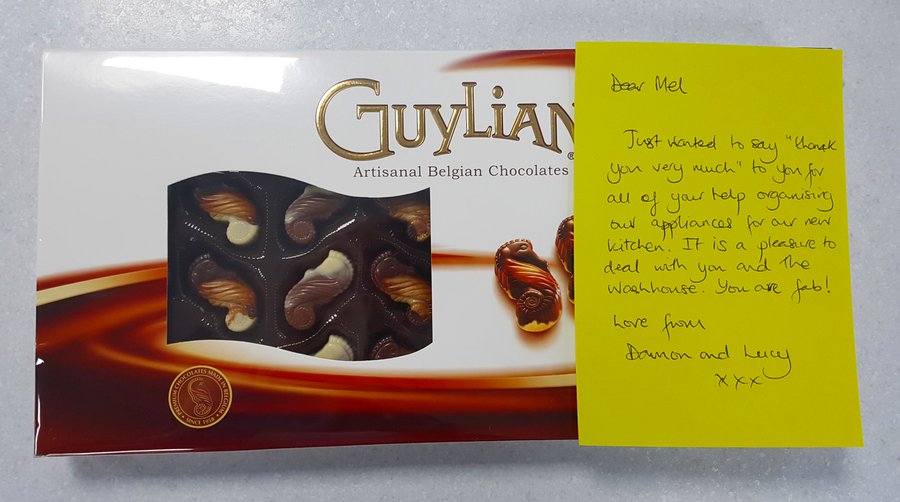 GUYLIAN
Artisanal Belgian Chocolates
PREMIUM CHOCOLATES MADE IN BELGIUM
SINCE 1958
Dear Mel
Just wanted to say "thank
you very much" to you for
all of your help organising
our appliances for our new
kitchen. It is a pleasure to
deal with you and The
Washhouse. You are fab!
Love from
Damon and Lucy
xxx